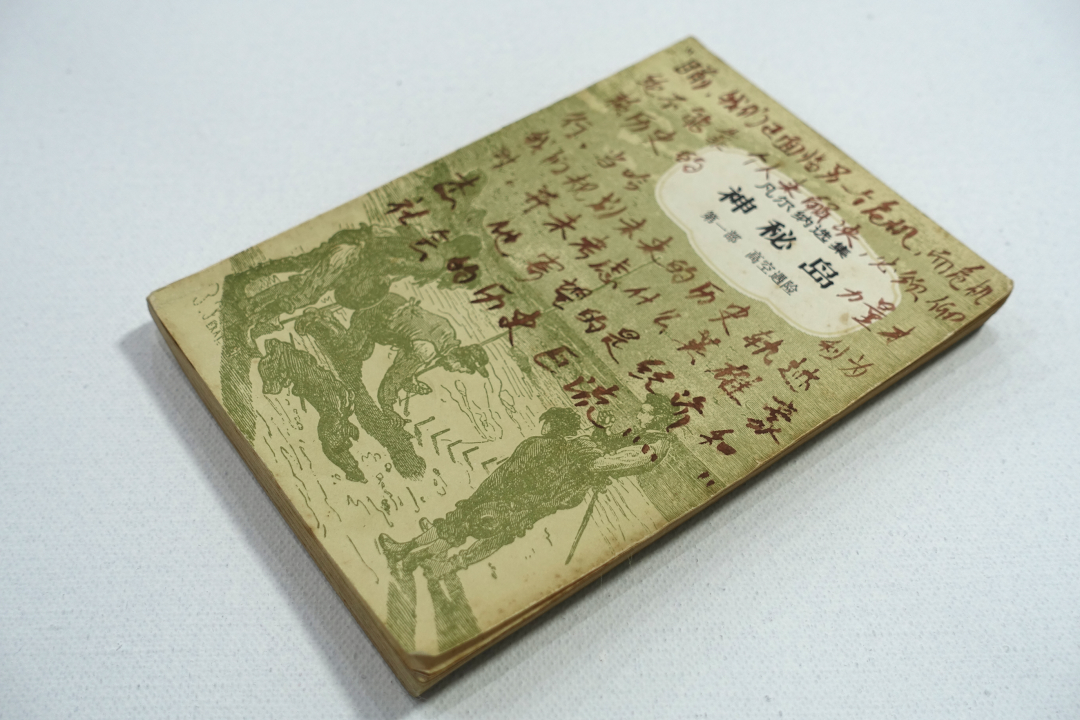 “瞧,我们已面临另一个危机,而危机
绝不能靠个人来解决,必须仰
赖历史的力量才
行。当哈
我们规划未来的历史轨迹
时,并未考虑什么英雄豪
杰,他寄望的是经济和
社会的历史巨流……”
凡尔纳选集
神秘岛
第一部 高空遇险